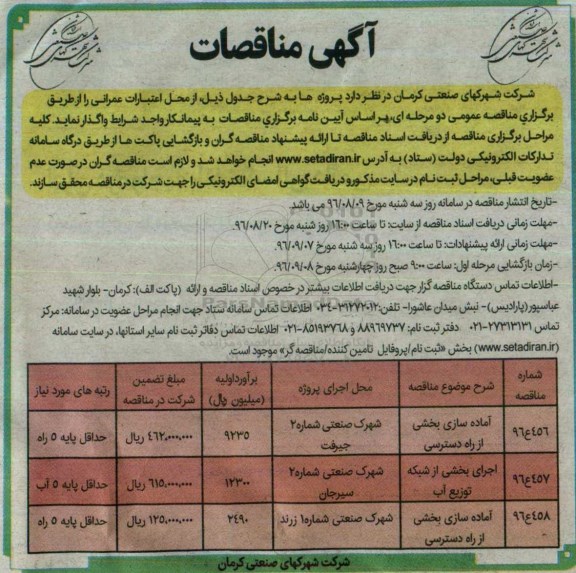 آگهی مناقصات
شرکت شهرکهای صنعتی کرمان در نظر دارد پروژه ها به شرح جدول ذیل، از محل اعتبارات عمرانی را از طریق
برگزاری مناقصه عمومی دو مرحله ای، بر اساس آیین نامه برگزاری مناقصات به پیمانکار واجد شرایط واگذار نماید. کلیه
مراحل برگزاری مناقصه از دریافت اسناد مناقصه تا ارائه پیشنهاد مناقصه گران و بازگشایی پاکت ها از طریق درگاه سامانه
تدارکات الکترونیکی دولت (ستاد) به آدرس www.setadiran.ir انجام خواهد شد و لازم است مناقصه گران در صورت عدم
عضویت قبلی، مراحل ثبت نام در سایت مذکور و دریافت گواهی امضای الکترونیکی را جهت شرکت در مناقصه محقق سازند.
-تاریخ انتشار مناقصه در سامانه روز سه شنبه مورخ ۹۶/۰۸/۰۹ می باشد.
-مهلت زمانی دریافت اسناد مناقصه از سایت: تا ساعت ۱۶:۰۰ روز شنبه مورخ ۹۶/۰۸/۲۰.
-مهلت زمانی ارائه پیشنهادات: تا ساعت ۱۶:۰۰ روز سه شنبه مورخ ۹۶/۰۹/۰۷.
-زمان بازگشایی مرحله اول: ساعت ۹:۰۰ صبح روز چهارشنبه مورخ ۹۶/۰۹/۰۸.
-اطلاعات تماس دستگاه مناقصه گزار جهت دریافت اطلاعات بیشتر در خصوص اسناد مناقصه و ارائه (پاکت الف): کرمان- بلوار شهید
عباسپور (پارادیس) - نبش میدان عاشورا- تلفن: ۳۱۲۷۲۰۱۲-۰۳۴ اطلاعات تماس سامانه ستاد جهت انجام مراحل عضویت در سامانه: مرکز
تماس ۲۷۳۱۳۱۳۱-۰۲۱ دفتر ثبت نام: ۸۸۹۶۹۷۳۷ و ۸۵۱۹۳۷۶۸-۰۲۱ اطلاعات تماس دفاتر ثبت نام سایر استانها، در سایت سامانه
(www.setadiran.ir) بخش «ثبت نام/پروفایل تامین کننده/مناقصه گر» موجود است.
شماره مناقصه | شرح موضوع مناقصه | محل اجرای پروژه | برآورد اولیه (میلیون ریال) | مبلغ تضمین شرکت در مناقصه | رتبه های مورد نیاز
۹۶ع۴۵۶ | آماده سازی بخشی از راه دسترسی | شهرک صنعتی شماره۲ جیرفت | ۹۲۳۵ | ۴۶۲,۰۰۰,۰۰۰ ریال | حداقل پایه ۵ راه
۹۶ع۴۵۷ | اجرای بخشی از شبکه توزیع آب | شهرک صنعتی شماره۲ سیرجان | ۱۲۳۰۰ | ۶۱۵,۰۰۰,۰۰۰ ریال | حداقل پایه ۵ آب
۹۶ع۴۵۸ | آماده سازی بخشی از راه دسترسی | شهرک صنعتی شماره۱ زرند | ۲۴۹۰ | ۱۲۵,۰۰۰,۰۰۰ ریال | حداقل پایه ۵ راه
شرکت شهرکهای صنعتی کرمان